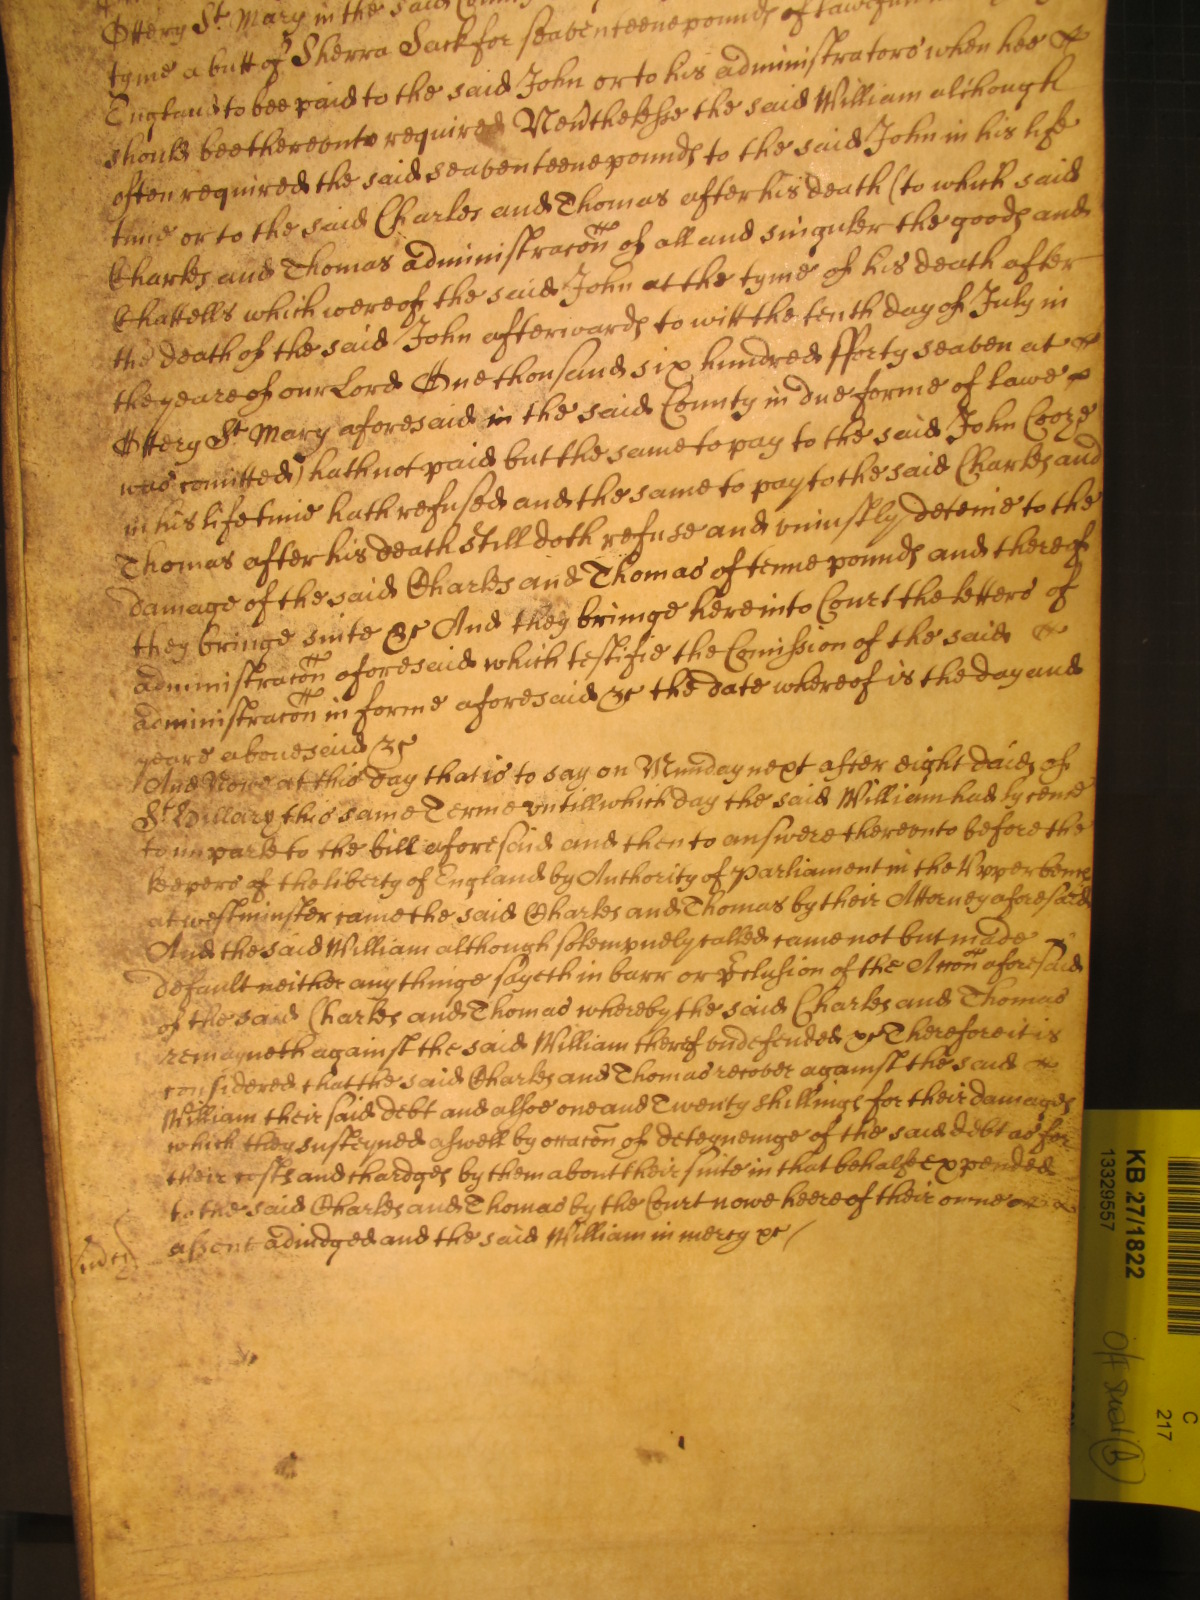 Ottery St. Mary in the said County
tyme a butt of Sherra Sack for seaventeene pounds of lawfull
England to bee paid to the said John or to his administrators when hee
should bee thereonto required Nevthelesse the said William although
often required the said seaventeene pounds to the said John in his life
tyme or to the said Charles and Thomas after his death (to which said
Charles and Thomas administracōn of all and singuler the goods and
Chattells which were of the said John at the tyme of his death after
the death of the said John afterwards to witt the tenth day of July in
the yeare of our Lord One thousand six hundred fforty seaven at
Ottery St. Mary aforesaid in the said County in due forme of lawe
was comitted) hath not paid but the same to pay to the said John Cooze
in his life time hath refused and the same to pay to the said Charles and
Thomas after his death still doth refuse and uniustly deteine to the
damage of the said Charles and Thomas of tenne pounds and thereof
they bringe suite &c And they bringe here into Court the letters of
administracōn aforesaid which testifie the Comission of the said
administracōn in forme aforesaid &c the date whereof is the day and
yeare abouesaid &c
And Nowe at this day that is to say on Munday next after eight daies of
St. Hillary this same Terme untill which day the said William had lycence
to imparle to the bill aforesaid and then to answere thereonto before the
keepers of the liberty of England by Authority of Parliament in the Upper bench
at westminster came the said Charles and Thomas by their Attorney aforesaid
And the said William although solempnely called came not but made
default neither any thinge sayeth in barr or Pclusion of the Accōn aforesaid
of the said Charles and Thomas whereby the said Charles and Thomas
remayneth against the said William thereof undefended &c Therefore it is
considered that the said Charles and Thomas recover against the said
William their said debt and alsoe one and Twenty shillings for their damages
which they susteyned aswell by occacōn of deteyneinge of the said debt as for
their costs and chardges by them about their suite in that behalfe expended
to the said Charles and Thomas by the Court nowe heere of their owne
assent adiudged and the said William in mercy &c
KB 27/1822
13329557
C
217